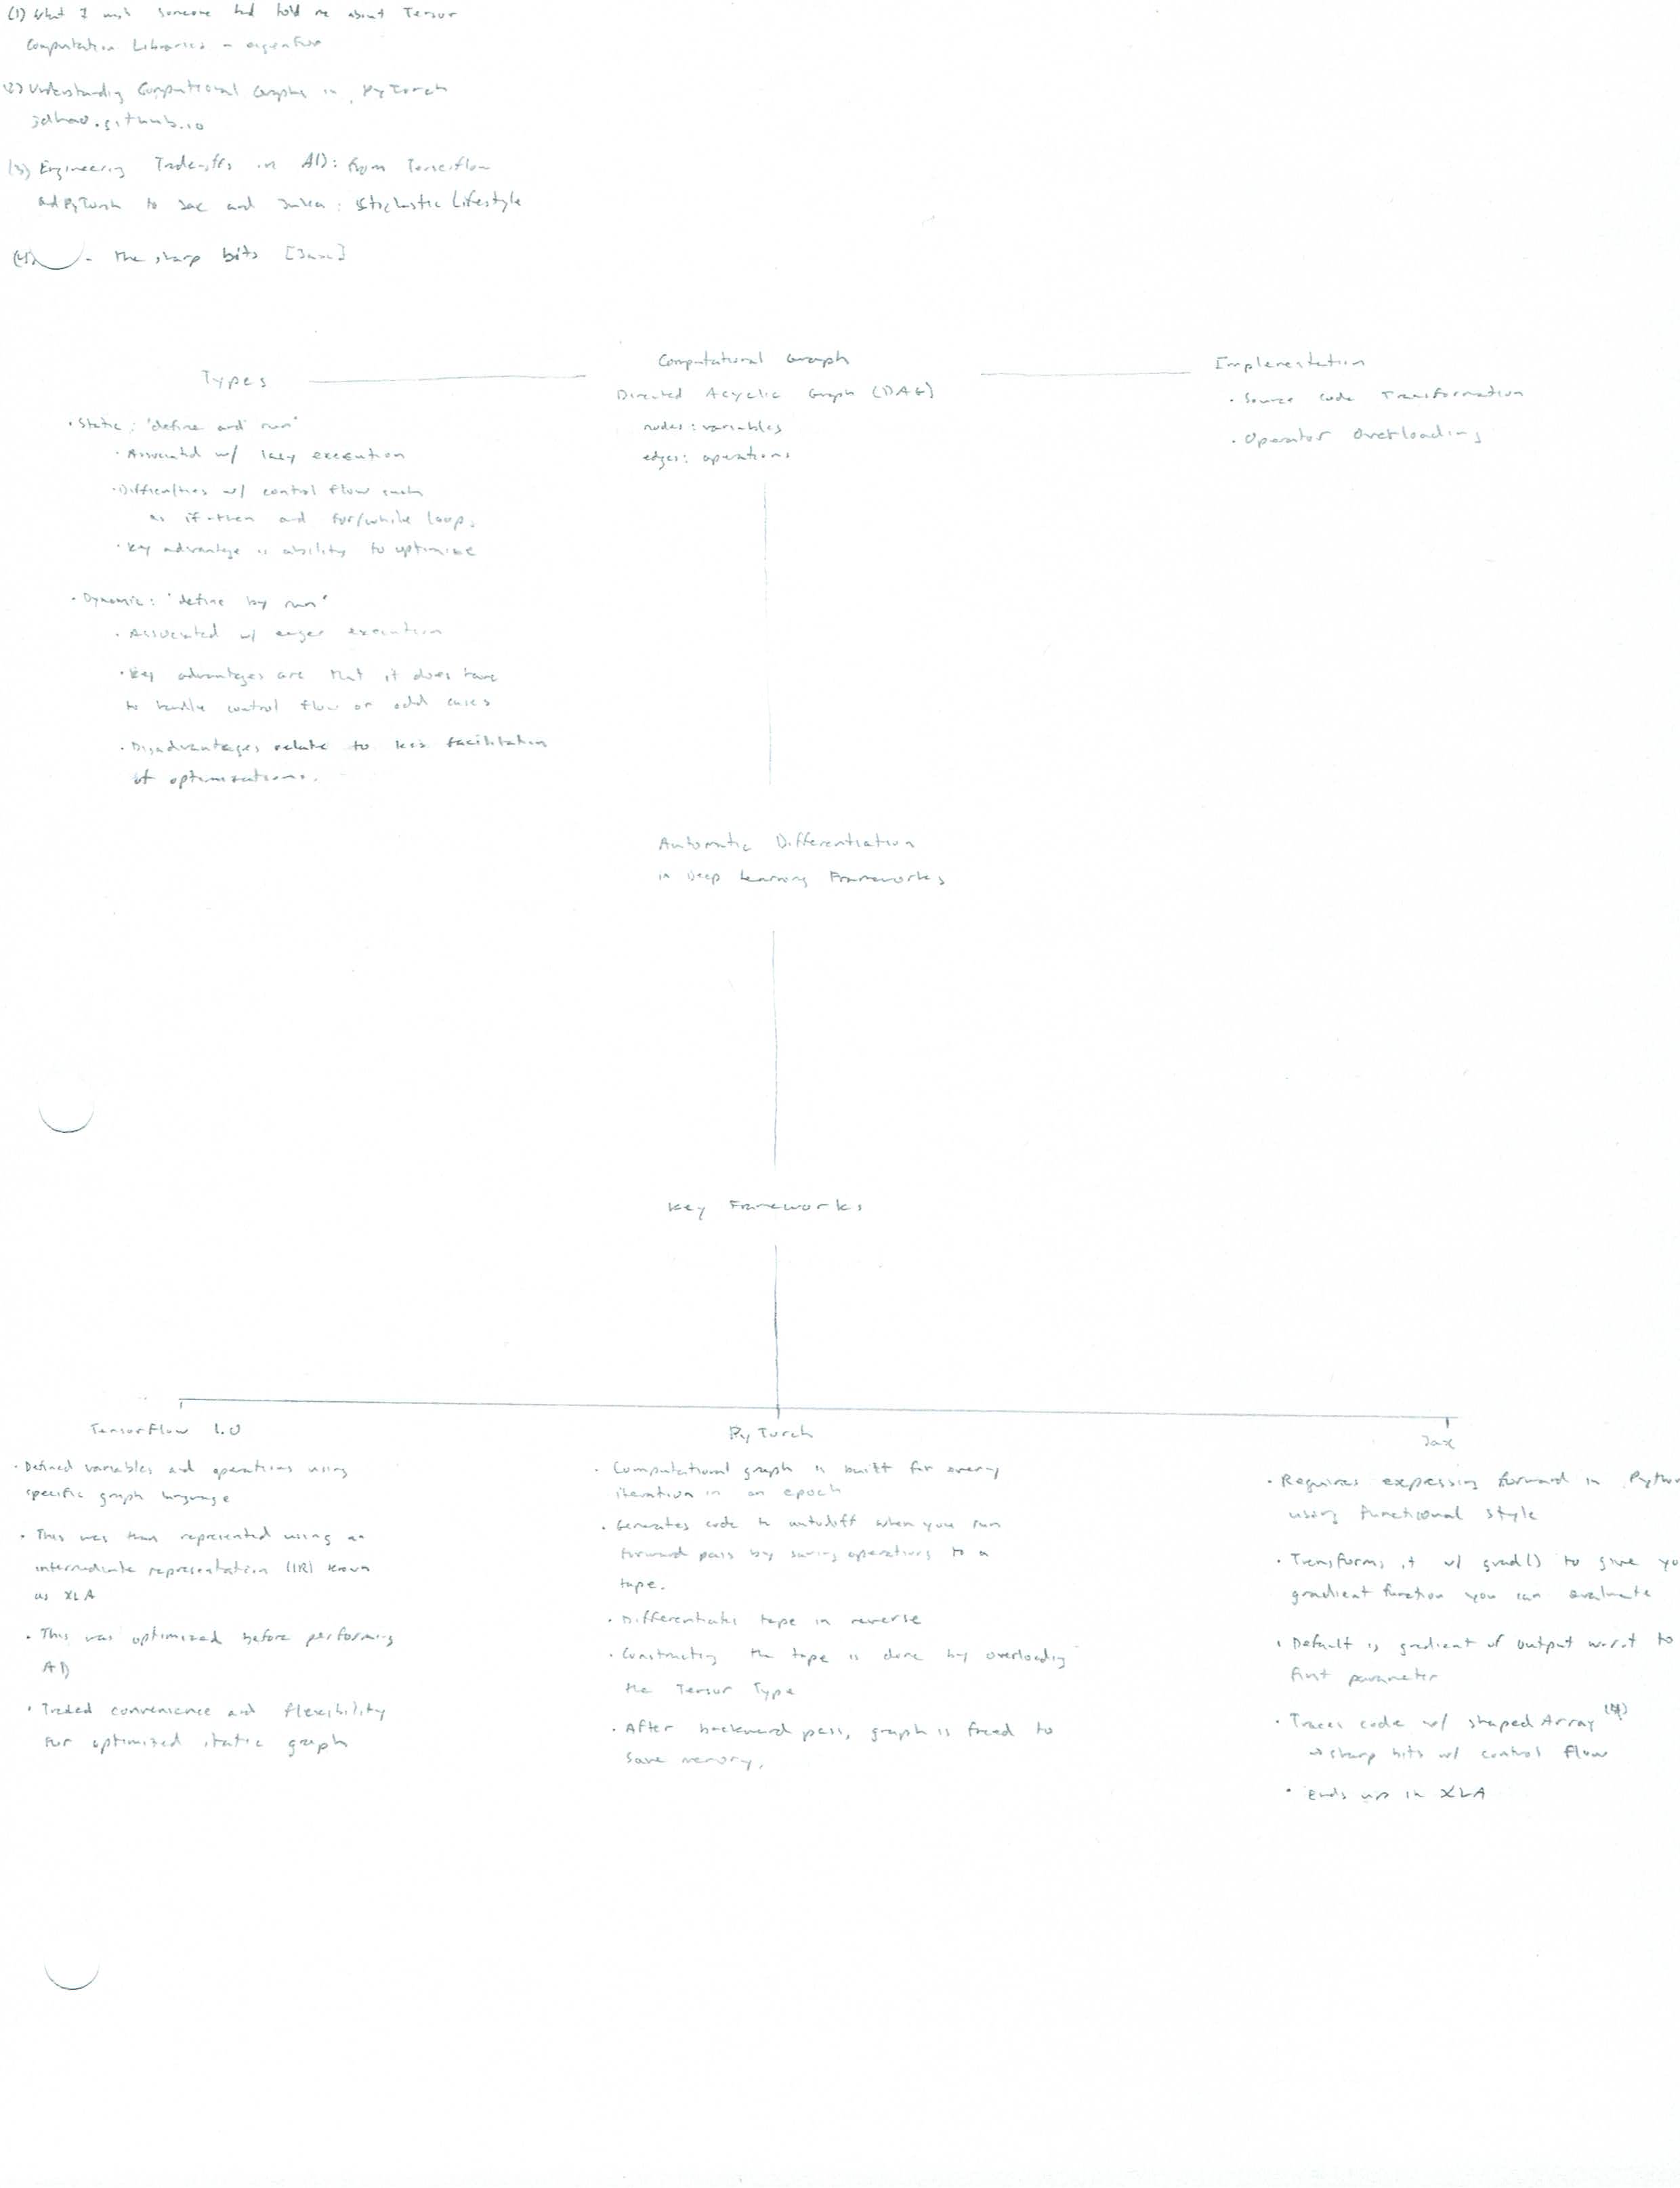 (1) What I wish someone had told me about Tensor
Computation Libraries - eigenfoo
(2) Understanding Computational Graphs in PyTorch
jdhao.github.io
(3) Engineering Trade-offs in AD: from Tensorflow
and PyTorch to Jax and Julia: Stochastic Lifestyle
(4) - The sharp bits [Jax]
Types
Computational Graph
Directed Acyclic Graph (DAG)
nodes: variables
edges: operations
Implementation
• Source code Transformation
• Operator Overloading
• Static: 'define and run'
• Associated w/ lazy execution
• Difficulties w/ control flow such
as if-then and for/while loops
• Key advantage is ability to optimize
• Dynamic: 'define by run'
• Associated w/ eager execution
• Key advantages are that it does have
to handle control flow or odd cases
• Disadvantages relate to less facilitation
of optimizations.
Automatic Differentiation
in Deep Learning Frameworks
Key Frameworks
TensorFlow 1.0
• Defined variables and operations using
specific graph language
• This was then represented using an
intermediate representation (IR) known
as XLA
• This was optimized before performing
AD
• Traded convenience and flexibility
for optimized static graph
PyTorch
• Computational graph is built for every
iteration in an epoch
• Generates code to autodiff when you run
forward pass by saving operations to a
tape.
• Differentiates tape in reverse
• Constructing the tape is done by overloading
the Tensor Type
• After backward pass, graph is freed to
save memory.
Jax
• Requires expressing forward in Python
using functional style
• Transforms it w/ grad() to give you
gradient function you can evaluate
• Default is gradient of output w.r.t to
first parameter
• Traces code w/ shaped Array (4)
⇒ sharp bits w/ control flow
• Ends up in XLA